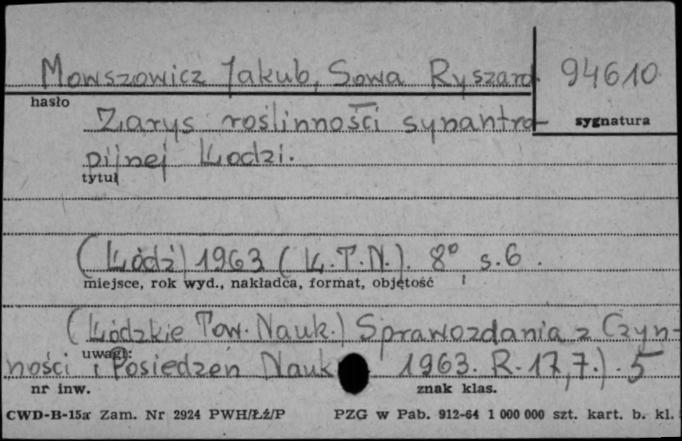 Mowszowicz Jakub, Sowa Ryszard 94610
hasło
Zarys roślinności synantro- sygnatura
pijnej Łodzi.
tytuł
(Łódź) 1963 (Ł.T.N.). 8°, s.6.
miejsce, rok wyd., nakładca, format, objętość
(Łódzkie Tow. Nauk.) Sprawozdania z Czyn-
uwagi:
ności i Posiedzeń Nauk 1963. R.17,7.). 5
nr inw. znak klas.
CWD-B-15a Zam. Nr 2924 PWH/Łź/P PZG w Pab. 912-64 1 000 000 szt. kart. b. kl.